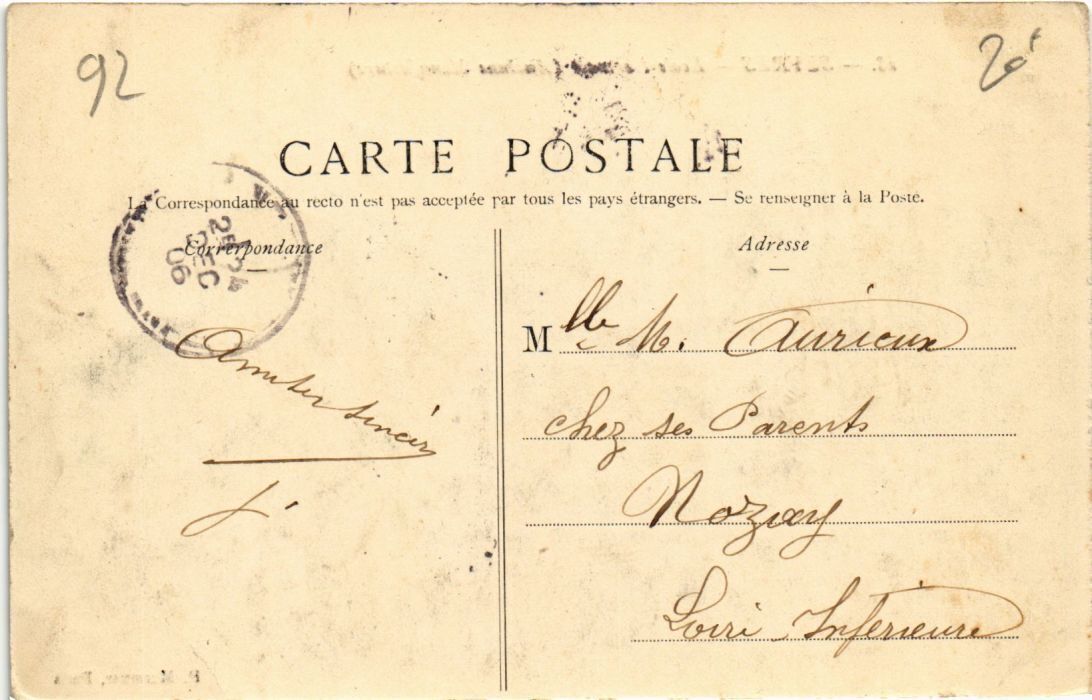 92
CARTE POSTALE
La Correspondance au recto n'est pas acceptée par tous les pays étrangers. — Se renseigner à la Poste.
Correspondance
DEC
06
Amitiés sincèr
J
Adresse
Mlle M. Aurieux
chez ses Parents
Nozay
Loire Inférieure